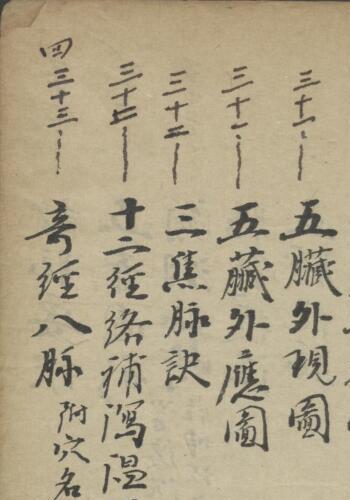 三十一 五臟外現圖
三十一 五臟外應圖
三十二 三焦脉訣
三十七 十二經絡補瀉溫
四三十三 奇經八脉 附穴名